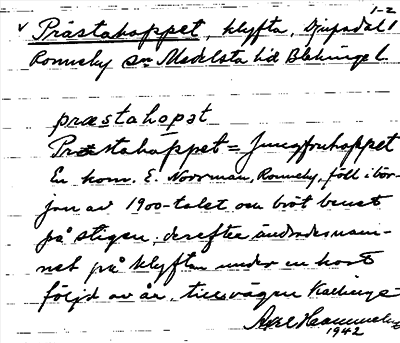 1-2
v Prästahoppet, klyfta, Djupadal 1
Ronneby sn Medelsta hd Blekinge l.
præstahopat
Prästahoppet = Jungfruhoppet
En kom. E. Norrman, Ronneby, föll i bör-
jan av 1900-talet och bröt benet
på stigen, derefter ändrades nam-
net på klyftan under en kort
följd av år, till vägen Kallinge
Axel
1942